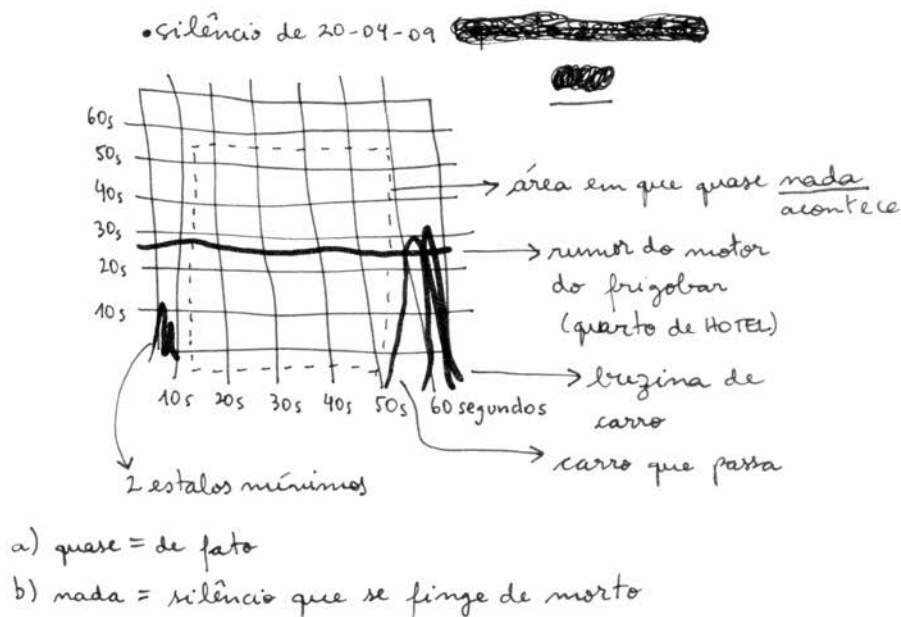 • silêncio de 20-04-09
60s
50s
40s
30s
20s
10s
10s 20s 30s 40s 50s 60 segundos
→ área em que quase nada
acontece
→ rumor do motor
do frigobar
(quarto de HOTEL)
→ buzina de
carro
→ carro que passa
2 estalos mínimos
a) quase = de fato
b) nada = silêncio que se finge de morto